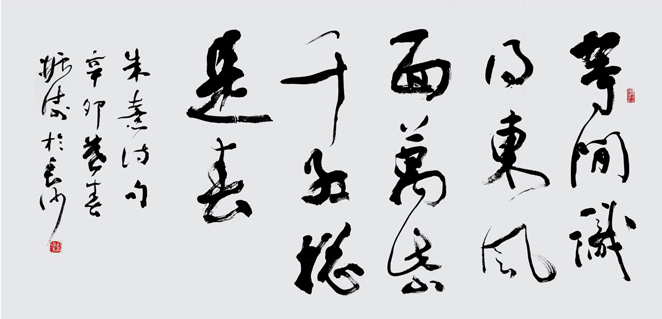 等閒識
得東風
面萬紫
千紅總
是春
朱熹詩句
辛卯暮春
於長沙